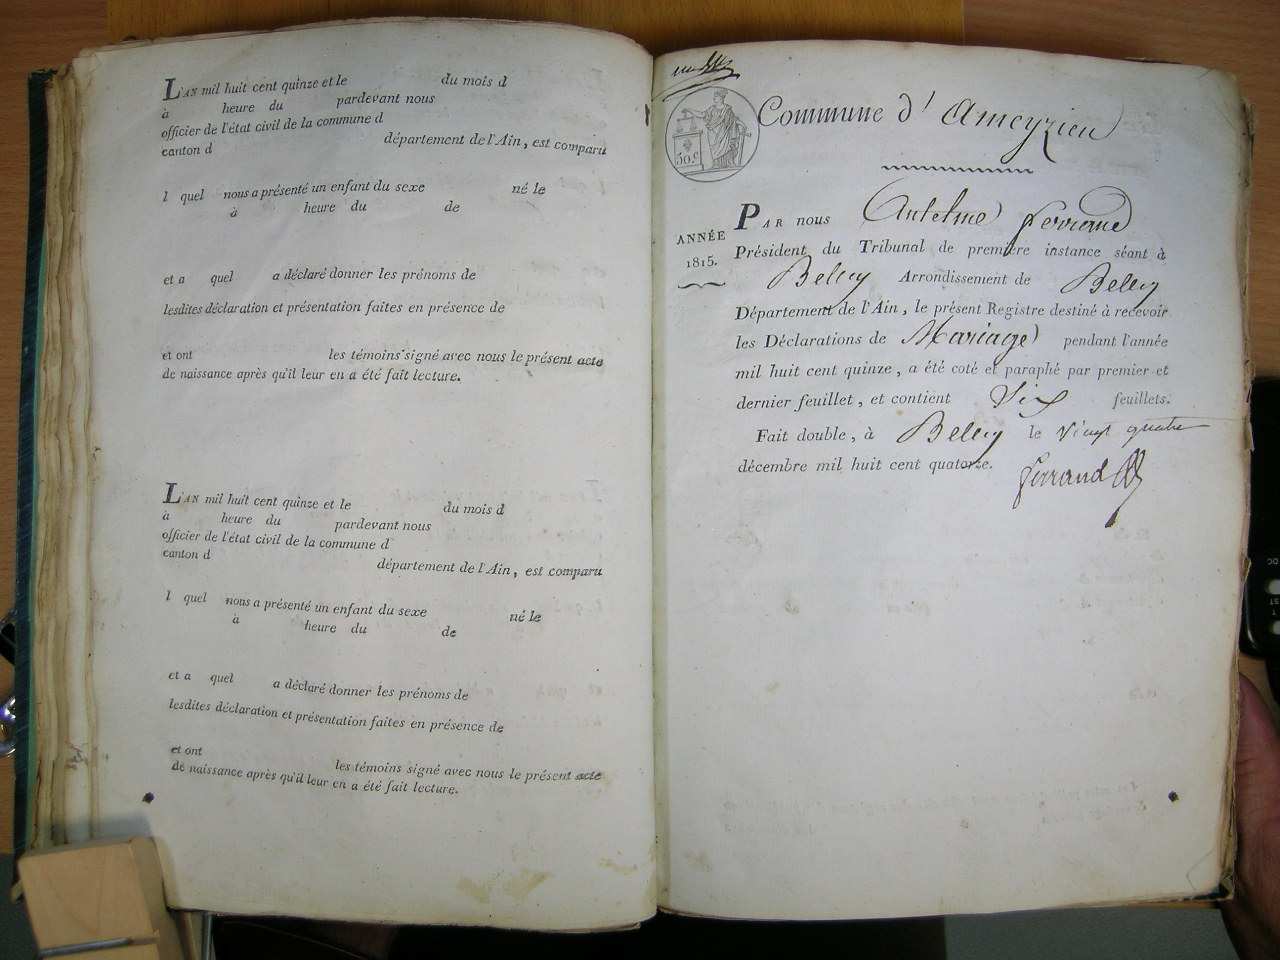 L'AN mil huit cent quinze et le du mois d
à heure du pardevant nous
officier de l'état civil de la commune d
canton d département de l'Ain, est comparu
l quel nous a présenté un enfant du sexe né le
à heure du de
et a quel a déclaré donner les prénoms de
lesdites déclaration et présentation faites en présence de
et ont les témoins signé avec nous le présent acte
de naissance après qu'il leur en a été fait lecture.
L'AN mil huit cent quinze et le du mois d
à heure du pardevant nous
officier de l'état civil de la commune d
canton d département de l'Ain, est comparu
l quel nous a présenté un enfant du sexe né le
à heure du de
et a quel a déclaré donner les prénoms de
lesdites déclaration et présentation faites en présence de
et ont les témoins signé avec nous le présent acte
de naissance après qu'il leur en a été fait lecture.
50.c
Commune d' Ameyzieu
ANNÉE
1815.
PAR nous Antelme Ferrand
Président du Tribunal de première instance séant à
Belley Arrondissement de Belley
Département de l'Ain, le présent Registre destiné à recevoir
les Déclarations de Mariage pendant l'année
mil huit cent quinze, a été coté et paraphé par premier et
dernier feuillet, et contient Six feuillets.
Fait double, à Belley le vingt quatre
décembre mil huit cent quatorze.
ferrand